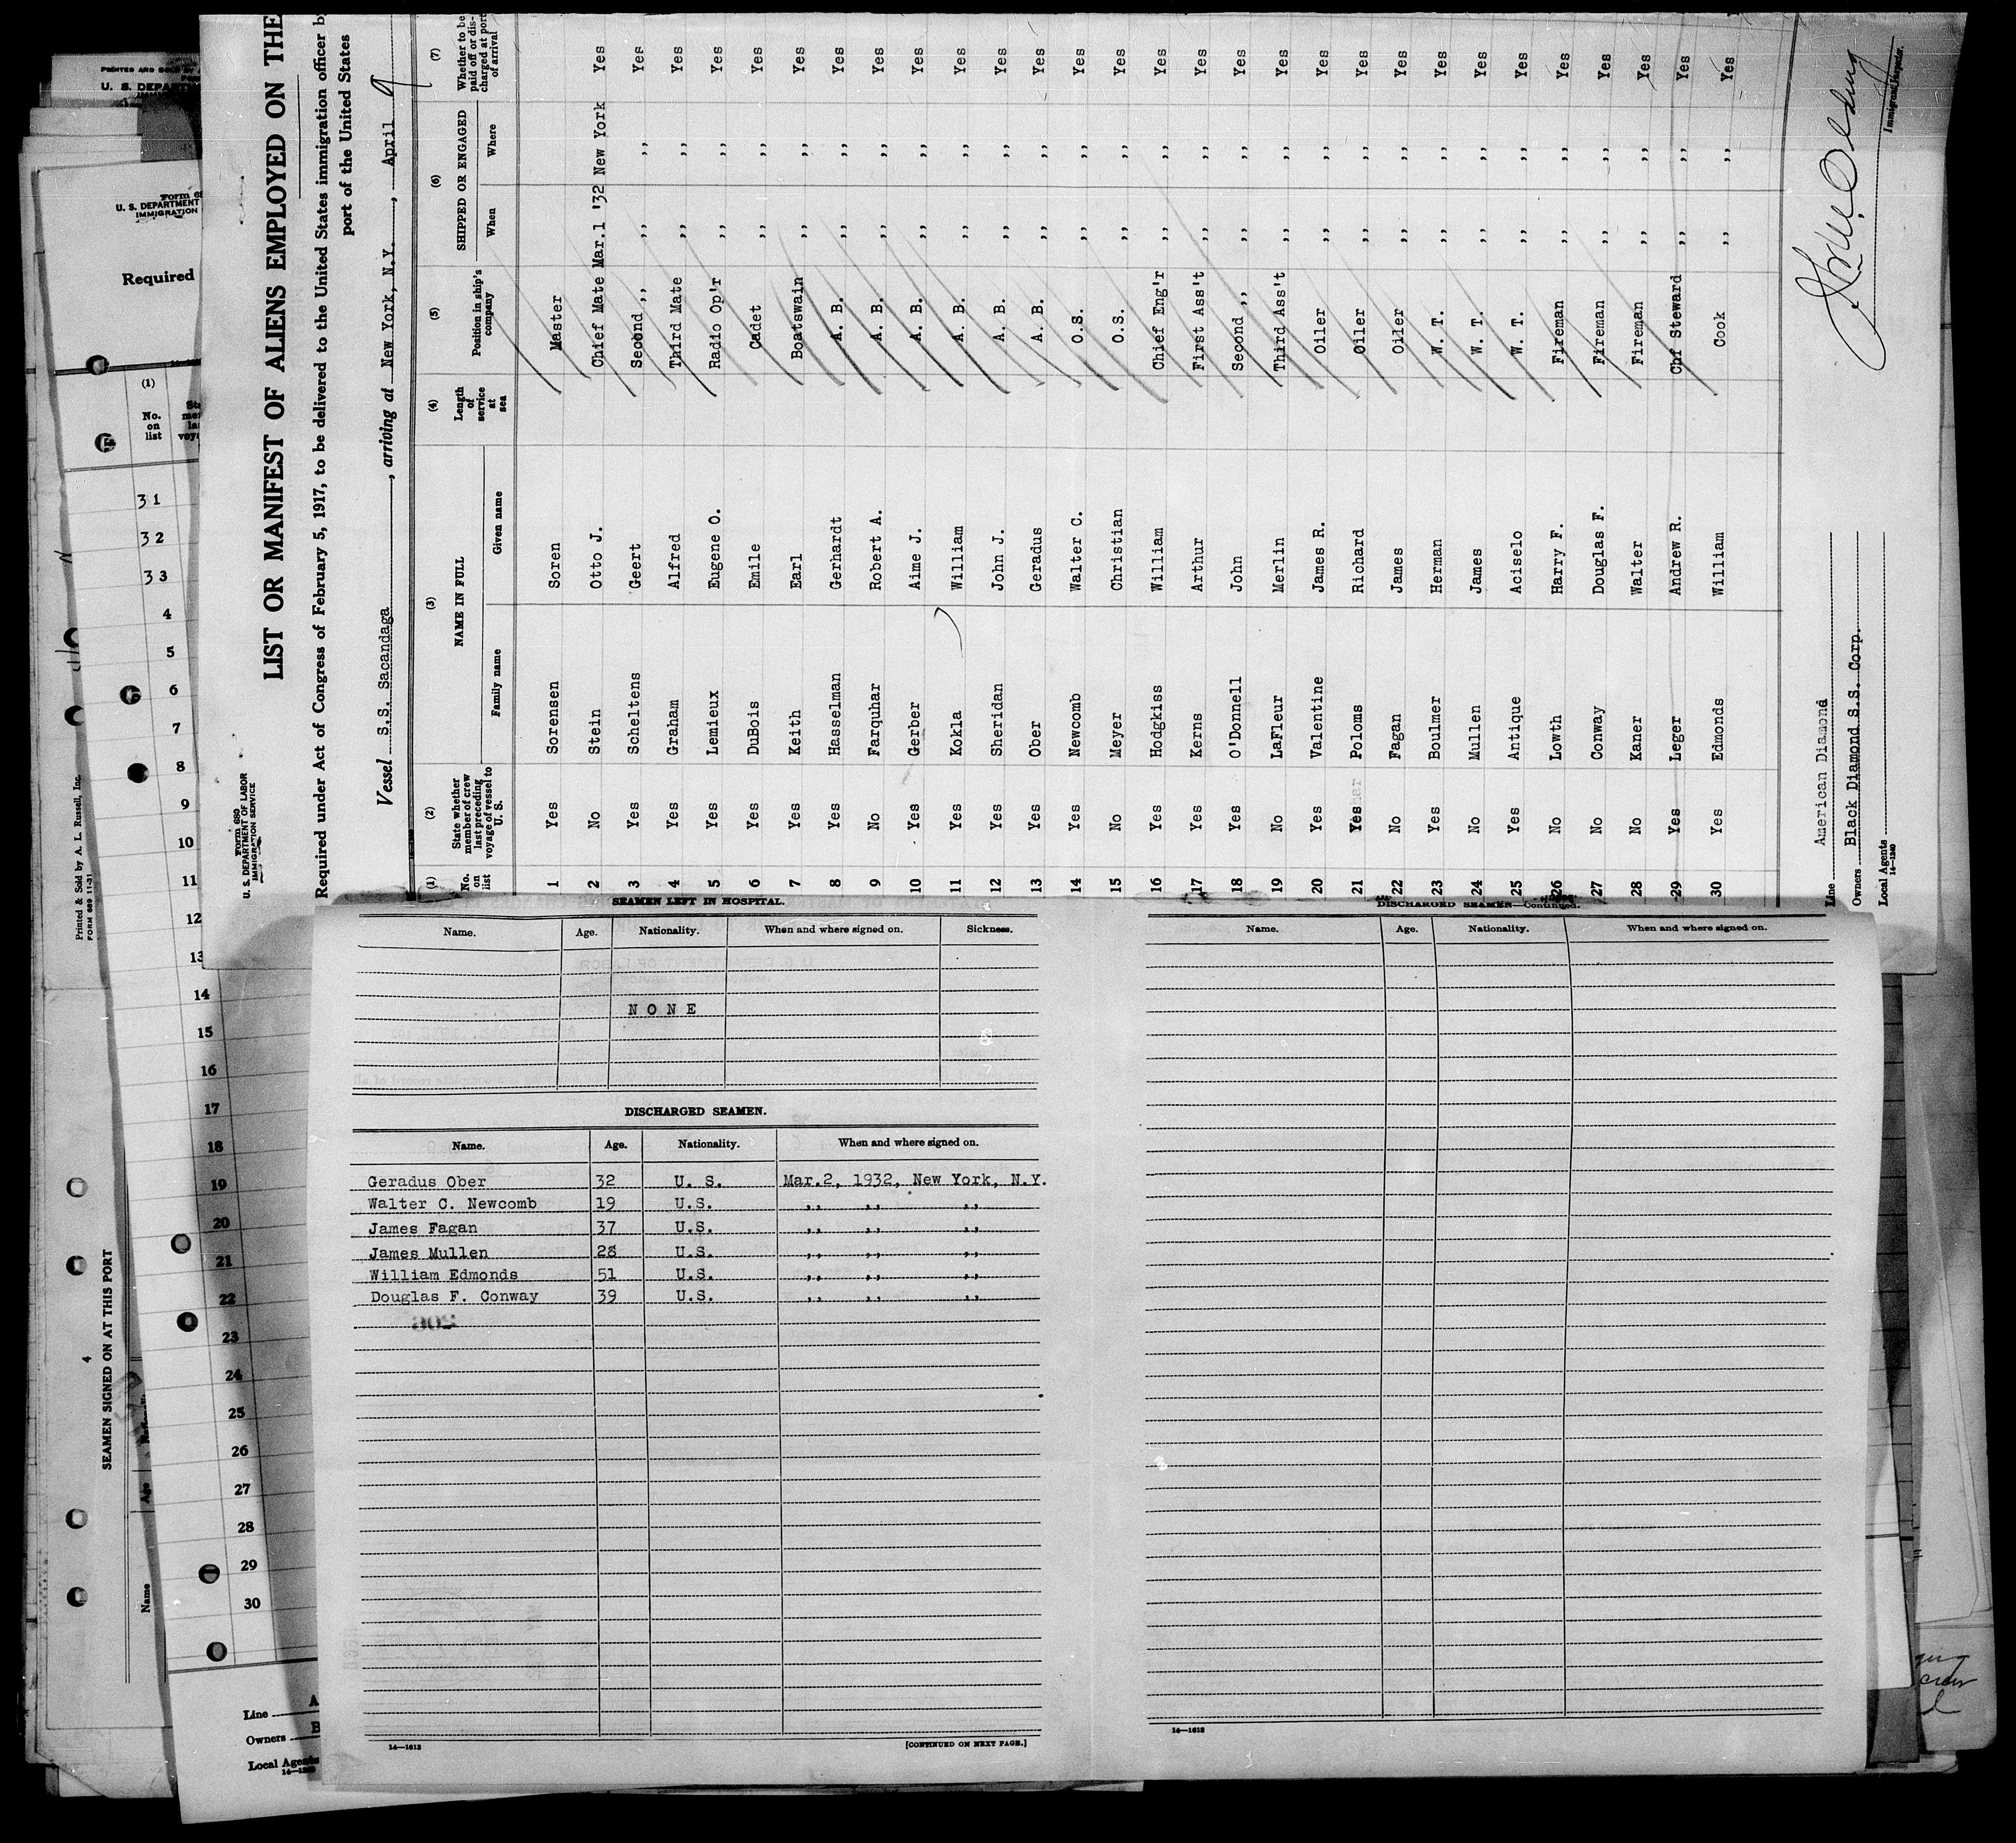 LIST OR MANIFEST OF ALIENS EMPLOYED ON THE
Form 680
U. S. DEPARTMENT OF LABOR
IMMIGRATION SERVICE
Required under Act of Congress of February 5, 1917, to be delivered to the United States immigration officer by
port of the United States
Vessel S.S. Sacandaga, arriving at New York, N.Y., April 9
(1) (2) (3) (4) (5) (6) (7)
No. on list
State whether member of crew last preceding voyage of vessel to U. S.
NAME IN FULL
Family name Given name
Length of service at sea
Position in ship's company
SHIPPED OR ENGAGED
When Where
Whether to be paid off or discharged at port of arrival
1 Yes Sorensen Soren Master
2 No Stein Otto J. Chief Mate Mar.1 '32 New York Yes
3 Yes Scheltens Geert Second ,, ,, ,, Yes
4 Yes Graham Alfred Third Mate ,, ,, Yes
5 Yes Lemieux Eugene O. Radio Op'r ,, ,, Yes
6 Yes DuBois Emile Cadet ,, ,, Yes
7 Yes Keith Earl Boatswain ,, ,, Yes
8 Yes Hasselman Gerhardt A. B. ,, ,, Yes
9 No Farquhar Robert A. A. B. ,, ,, Yes
10 Yes Gerber Aime J. A. B. ,, ,, Yes
11 Yes Kokla William A. B. ,, ,, Yes
12 Yes Sheridan John J. A. B. ,, ,, Yes
13 Yes Ober Geradus A. B. ,, ,, Yes
14 Yes Newcomb Walter C. O.S. ,, ,, Yes
15 No Meyer Christian O.S. ,, ,, Yes
16 Yes Hodgkiss William Chief Eng'r ,, ,, Yes
17 Yes Kerns Arthur First Ass't ,, ,, Yes
18 Yes O'Donnell John Second ,, ,, ,, Yes
19 No LaFleur Merlin Third Ass't ,, ,, Yes
20 Yes Valentine James R. Oiler ,, ,, Yes
21 Yes Poloms Richard Oiler ,, ,, Yes
22 No Fagan James Oiler ,, ,, Yes
23 Yes Boulmer Herman W. T. ,, ,, Yes
24 No Mullen James W. T. ,, ,, Yes
25 Yes Antique Aciselo W. T. ,, ,, Yes
26 No Lowth Harry F. Fireman ,, ,, Yes
27 No Conway Douglas F. Fireman ,, ,, Yes
28 No Kaner Walter Fireman ,, ,, Yes
29 Yes Leger Andrew R. Chf Steward ,, ,, Yes
30 Yes Edmonds William Cook ,, ,, Yes
Line American Diamond
Owners Black Diamond S.S. Corp.
Local Agents
14—1240
Immigrant Inspector.
SEAMEN LEFT IN HOSPITAL.
Name. Age. Nationality. When and where signed on. Sickness.
NONE
DISCHARGED SEAMEN.
Name. Age. Nationality. When and where signed on.
Geradus Ober 32 U. S. Mar.2, 1932, New York, N.Y.
Walter C. Newcomb 19 U.S. ,, ,, ,,
James Fagan 37 U.S. ,, ,, ,,
James Mullen 28 U.S. ,, ,, ,,
William Edmonds 51 U.S. ,, ,, ,,
Douglas F. Conway 39 U.S. ,, ,, ,,
14—1613
[CONTINUED ON NEXT PAGE.]
DISCHARGED SEAMEN—Continued.
Name. Age. Nationality. When and where signed on.
14—1613
PRINTED AND SOLD BY
U. S. DEPA
U. S. DEPARTMENT
IMMIGRATION
Required
(1)
No. on list
31
32
33
4
5
6
7
8
9
10
11
12
13
14
15
16
17
18
19
20
21
22
23
24
25
26
27
28
29
30
Line
Owners
Local Agents
Printed & Sold by A. L. Russell, Inc.
FORM 689 11-31
4
SEAMEN SIGNED ON AT THIS PORT
Name Age
crew